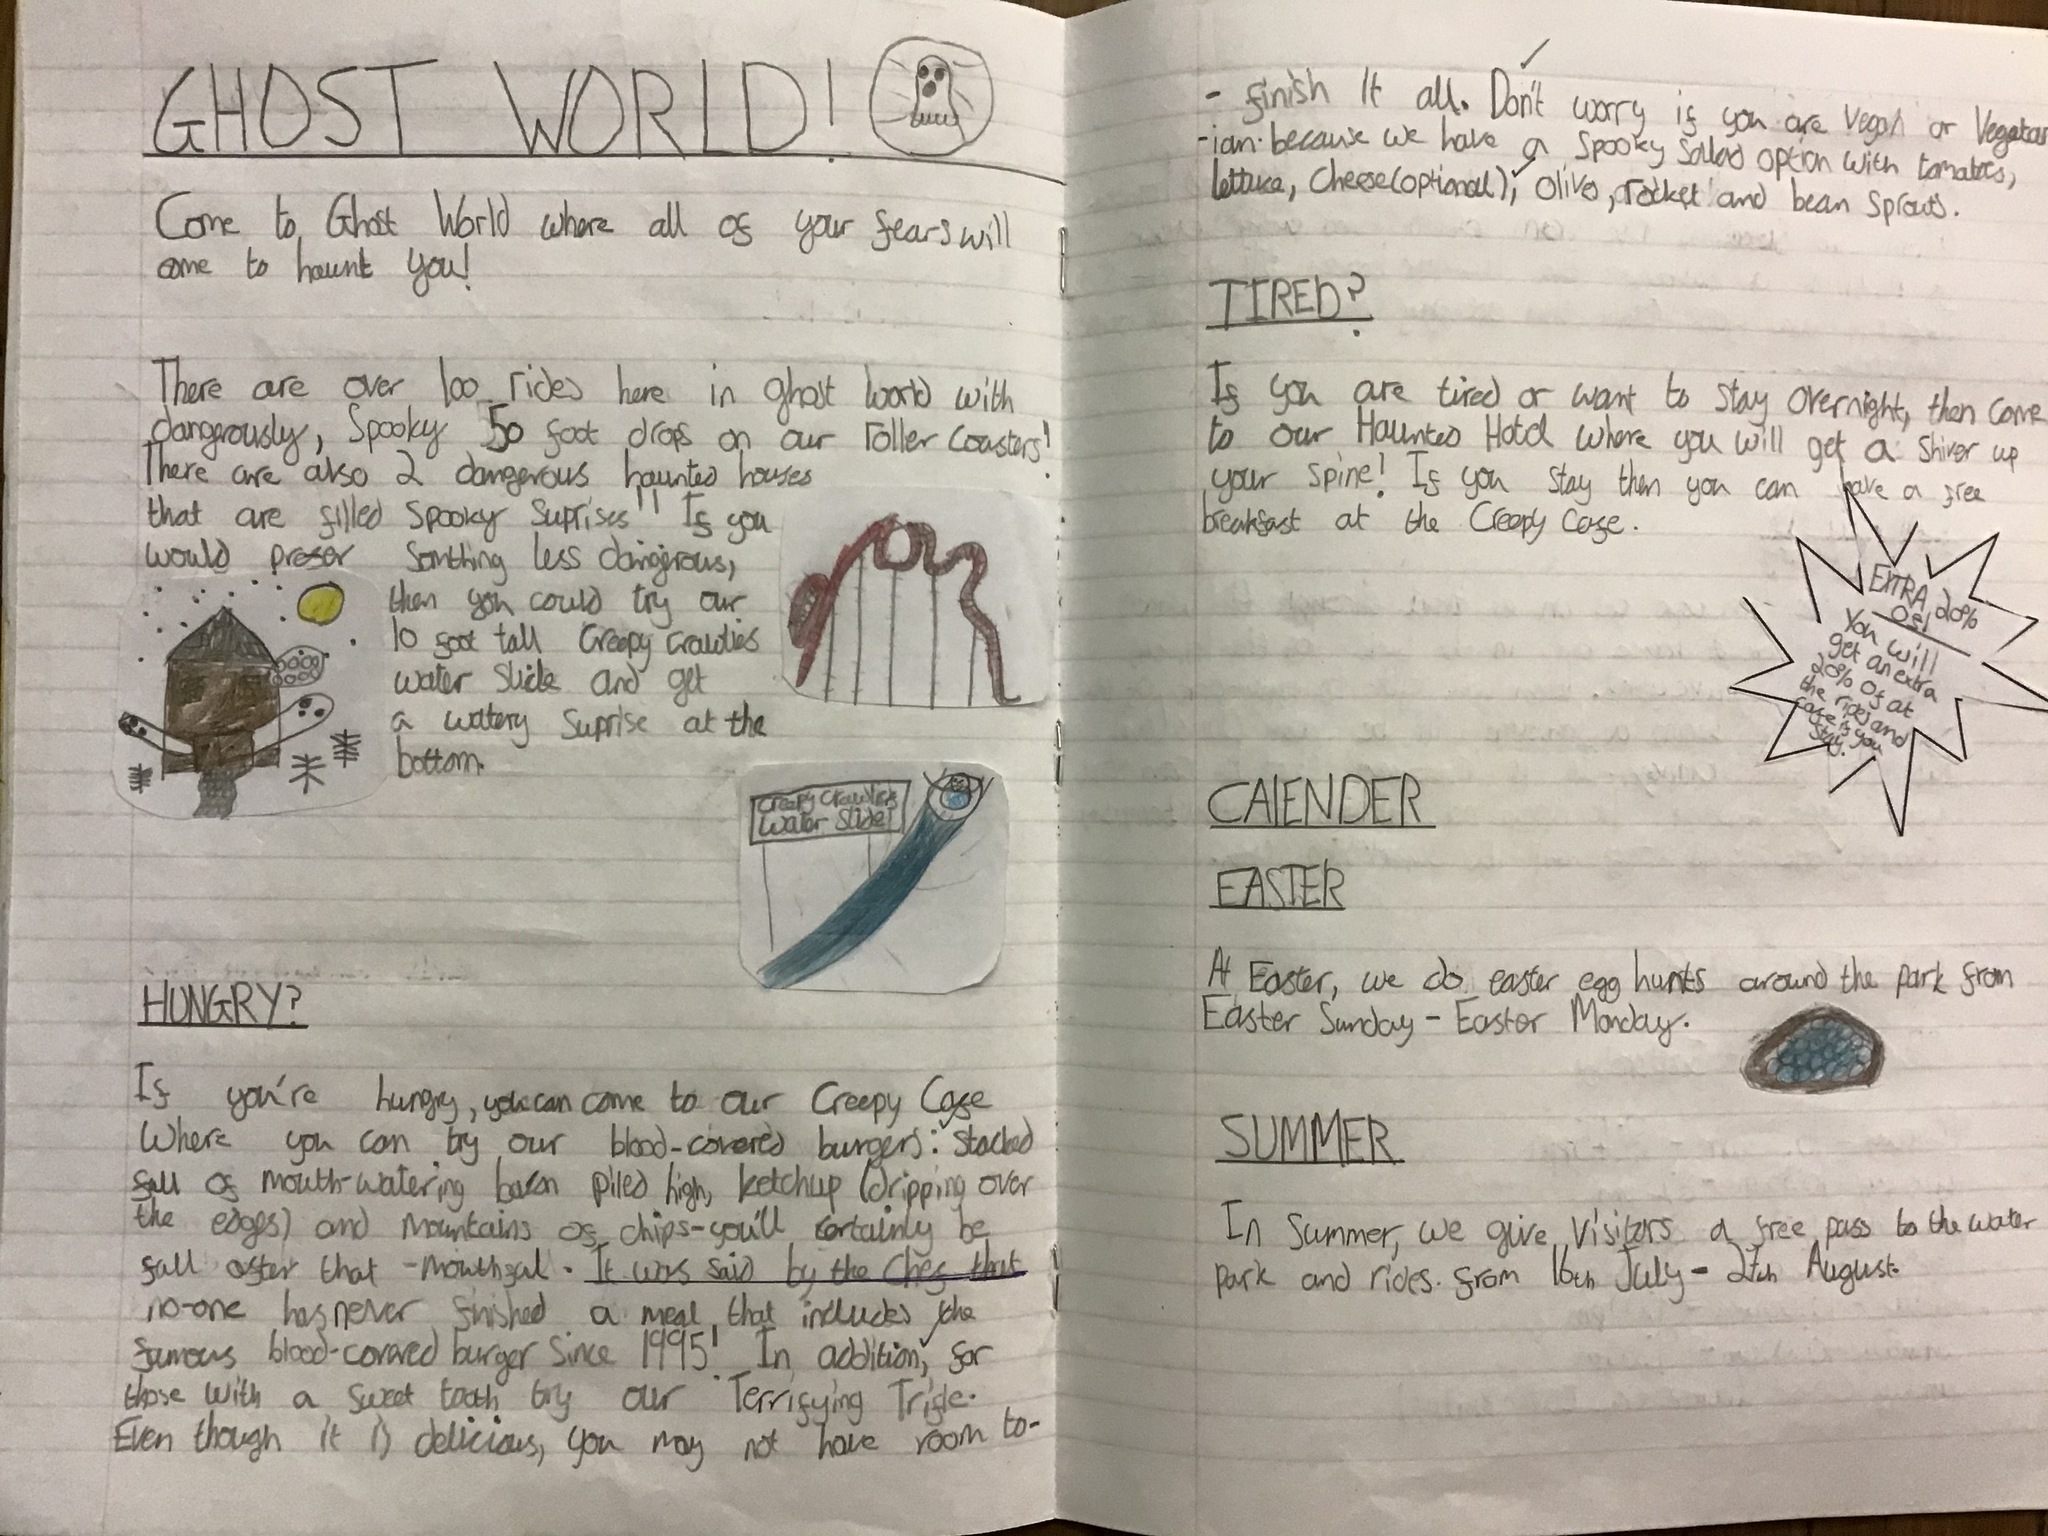 GHOST WORLD!
Come to Ghost World where all of your fears will
come to haunt you!
There are over 100 rides here in ghost world with
dangerously, spooky 50 foot drops on our roller coasters!
There are also 2 dangerous haunted houses
that are filled spooky suprises!! If you
would prefer somthing less dangerous,
then you could try our
10 foot tall Creepy Crawlies
water slide and get
a watery suprise at the
bottom.
Creepy Crawlies
Water Slide!
HUNGRY?
If you're hungry, you can come to our Creepy Cafe
where you can try our blood-covered burgers: stacked
full of mouth-watering bacon piled high, ketchup (dripping over
the edges) and mountains of chips-you'll certainly be
full after that -mouthful. It was said by the chef that
no-one has never finished a meal that includes the
famous blood-covered burger since 1995! In addition, for
those with a sweet tooth try our Terrifying Trifle.
Even though it is delicious, you may not have room to-
- finish it all. Don't worry if you are vegan or Vegetar
-ian. because we have a spooky sallad option with tomatoes,
lettuce, cheese(optional), olives, rocket and bean sprouts.
TIRED?
If you are tired or want to stay overnight, then come
to our Haunted Hotel where you will get a shiver up
your spine! If you stay then you can have a free
breakfast at the Creepy Cafe.
EXTRA 20%
Off!
You will
get an extra
20% of at
the rides and
cafe if you
stay.
CALENDER
EASTER
At Easter, we do easter egg hunts around the park from
Easter Sunday - Easter Monday.
SUMMER
In Summer, we give visitors a free pass to the water
park and rides. from 16th July - 27th August.